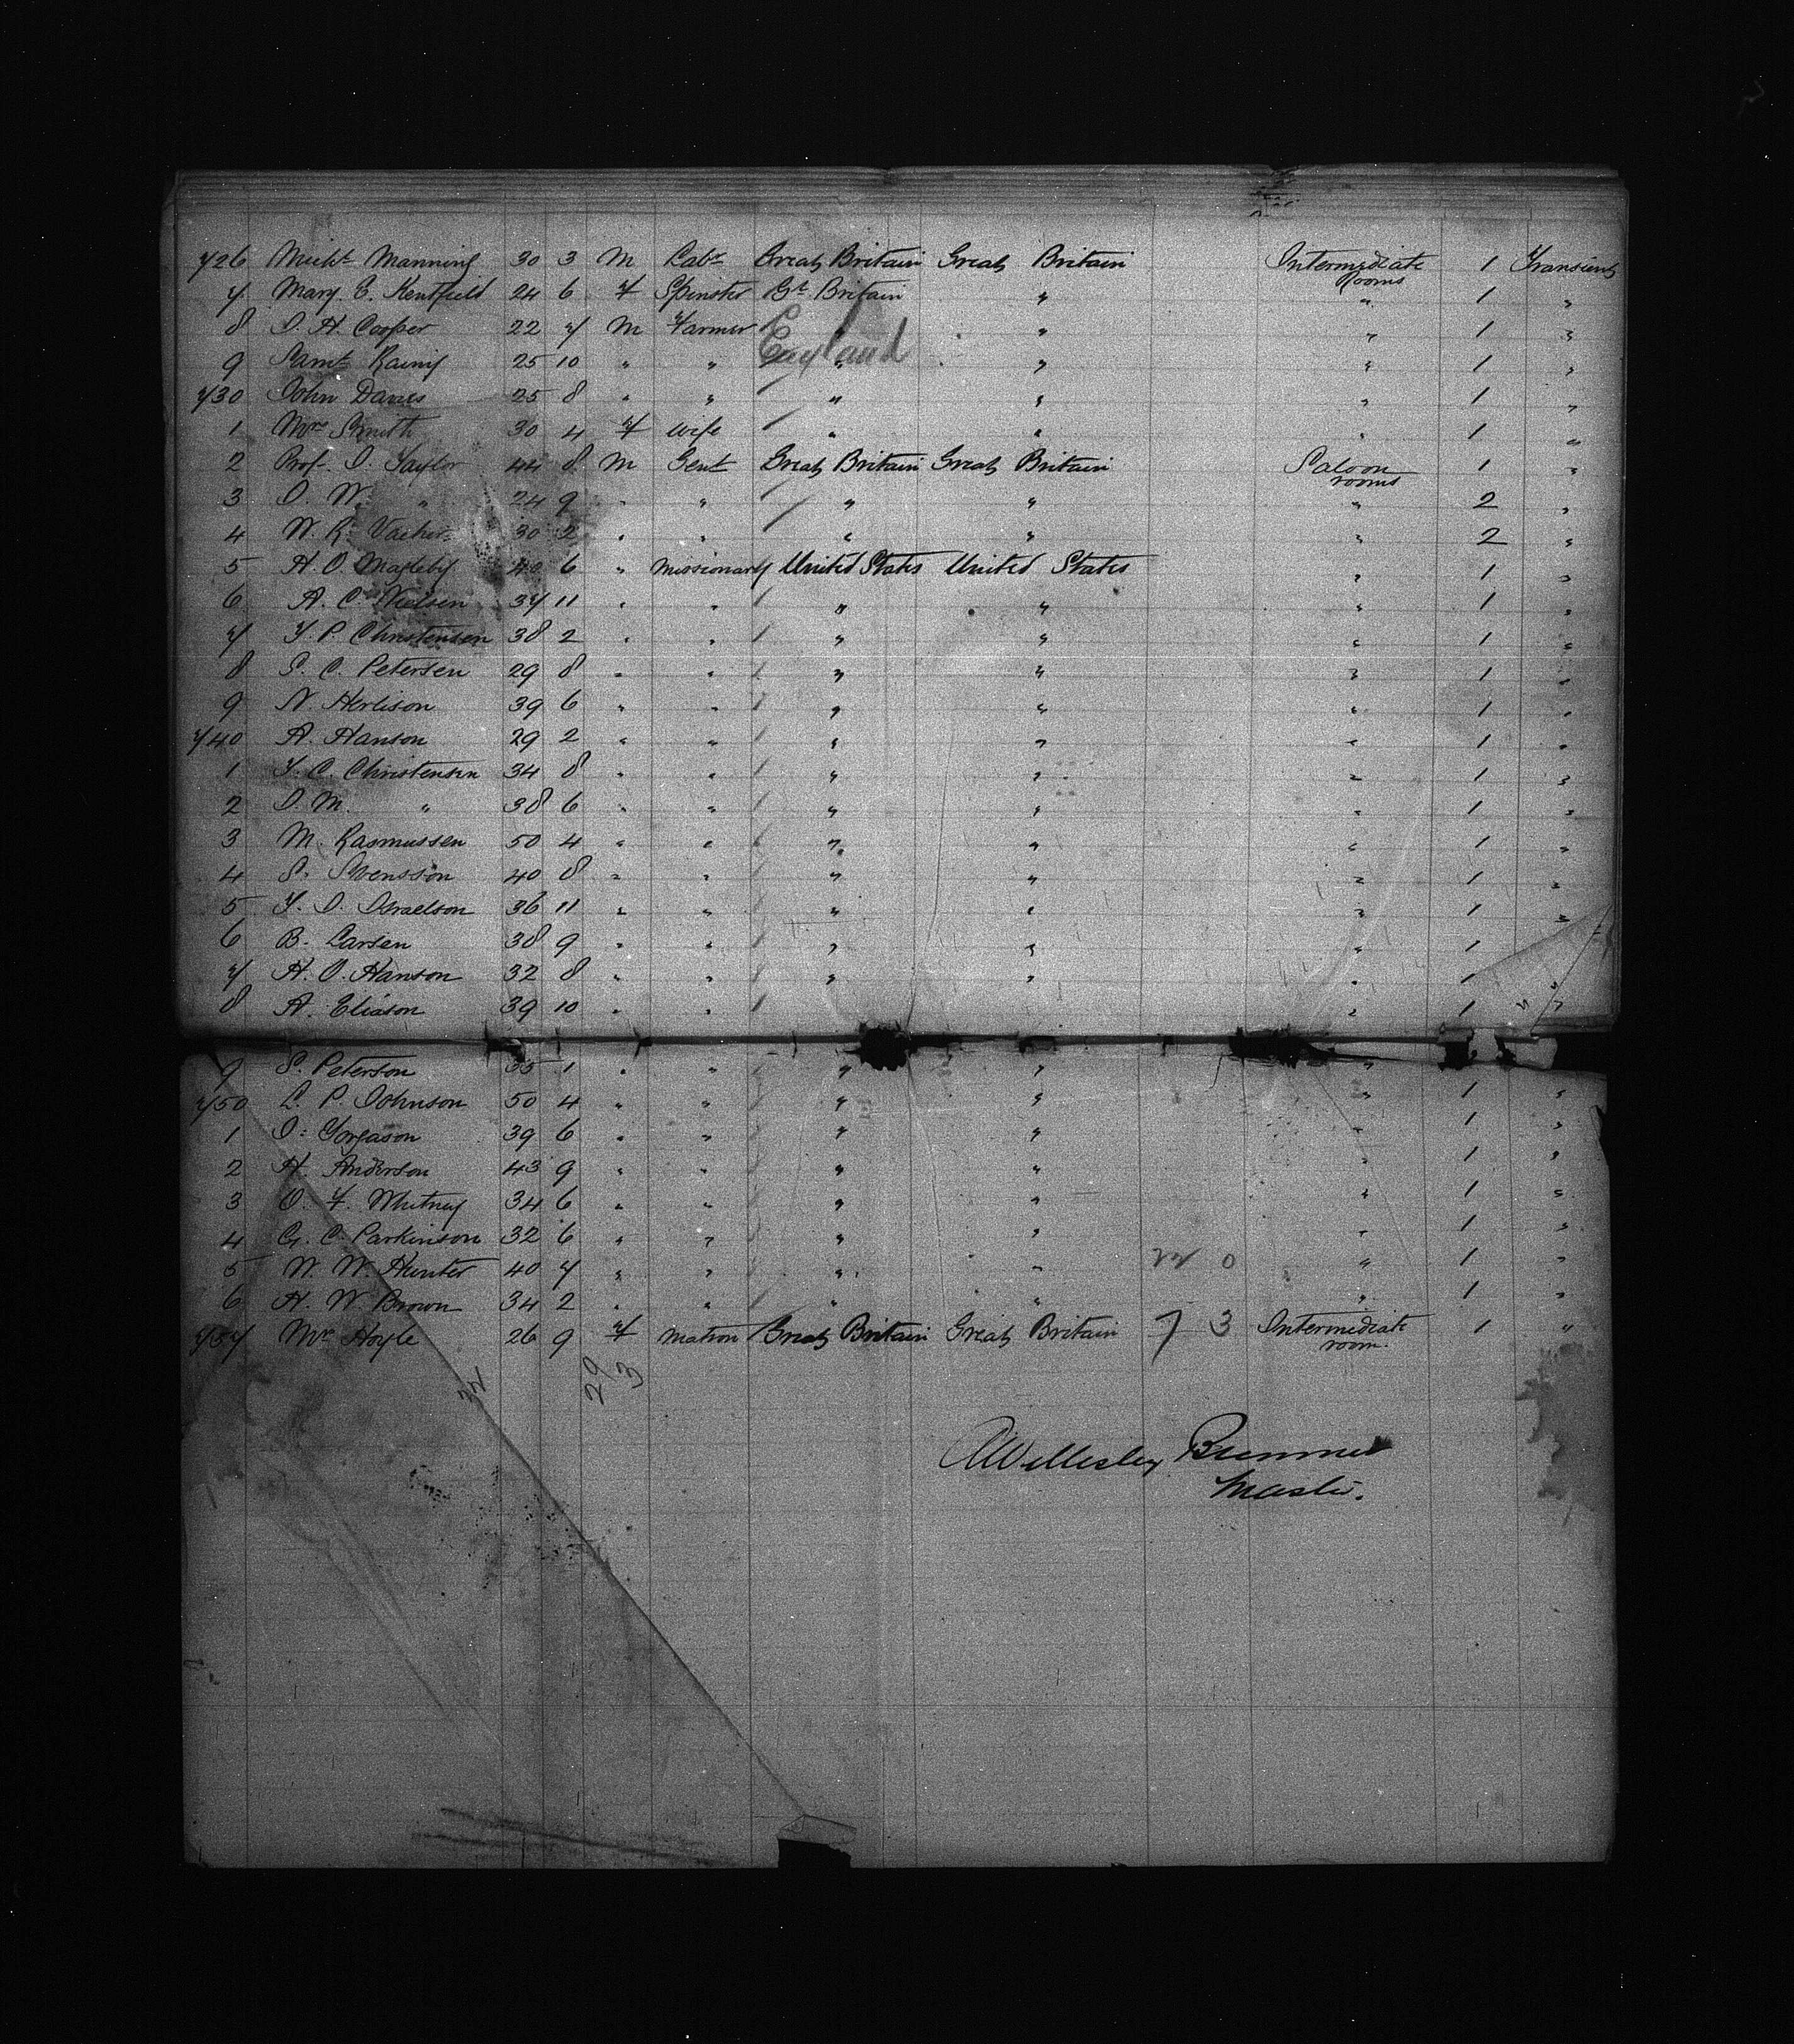 726 Michl Manning 30 3 M Labr Great Britain Great Britain Intermediate Rooms 1 Transient
7 Mary E. Kentfield 24 6 F Spinster Gt Britain " " 1 "
8 J. H. Cooper 22 7 M Farmer " " " 1 "
England
9 Saml Rainy 25 10 " " " " " 1 "
730 John Davies 25 8 " " " " " 1 "
1 Mrs Smith 30 4 F Wife " " " 1 "
2 Prof. J. Taylor 44 8 M Gent Great Britain Great Britain Saloon rooms 1 "
3 J. W. " 24 9 " " " " " 2 "
4 W. R. 30 2 " " " " " 2 "
5 H. O. Magleby 40 6 " Missionary United States United States " 1 "
6 A. C. Nielsen 37 11 " " " " " 1 "
7 F. P. Christensen 38 2 " " " " " 1 "
8 S. C. Petersen 29 8 " " " " " 1 "
9 N. Herlison 39 6 " " " " " 1 "
740 A. Hanson 29 2 " " " " " 1 "
1 F. C. Christensen 34 8 " " " " " 1 "
2 J. M. " 38 6 " " " " " 1 "
3 M. Rasmussen 50 4 " " " " " 1 "
4 S. Svensson 40 8 " " " " " 1 "
5 F. J. Israelson 36 11 " " " " " 1 "
6 B. Larsen 38 9 " " " " " 1 "
7 H. O. Hanson 32 8 " " " " " 1 "
8 A. Eliason 39 10 " " " 1 "
9 S. Peterson 35 1 " " " " "
750 L. P. Johnson 50 4 " " " " " 1 "
1 J. Yorgason 39 6 " " " " " 1 "
2 H. Anderson 43 9 " " " " " 1 "
3 O. F. Whitney 34 6 " " " " " 1 "
4 G. C. Parkinson 32 6 " " " " " 1 "
5 W. W. Hunter 40 7 " " " " 22 0 " 1 "
6 H. W. Brown 34 2 " " " " " 1 "
757 Mrs Hoyle 26 9 F Matron Great Britain Great Britain 7 3 Intermediate room. 1 "
22 29 3
A Wellesley
Master.